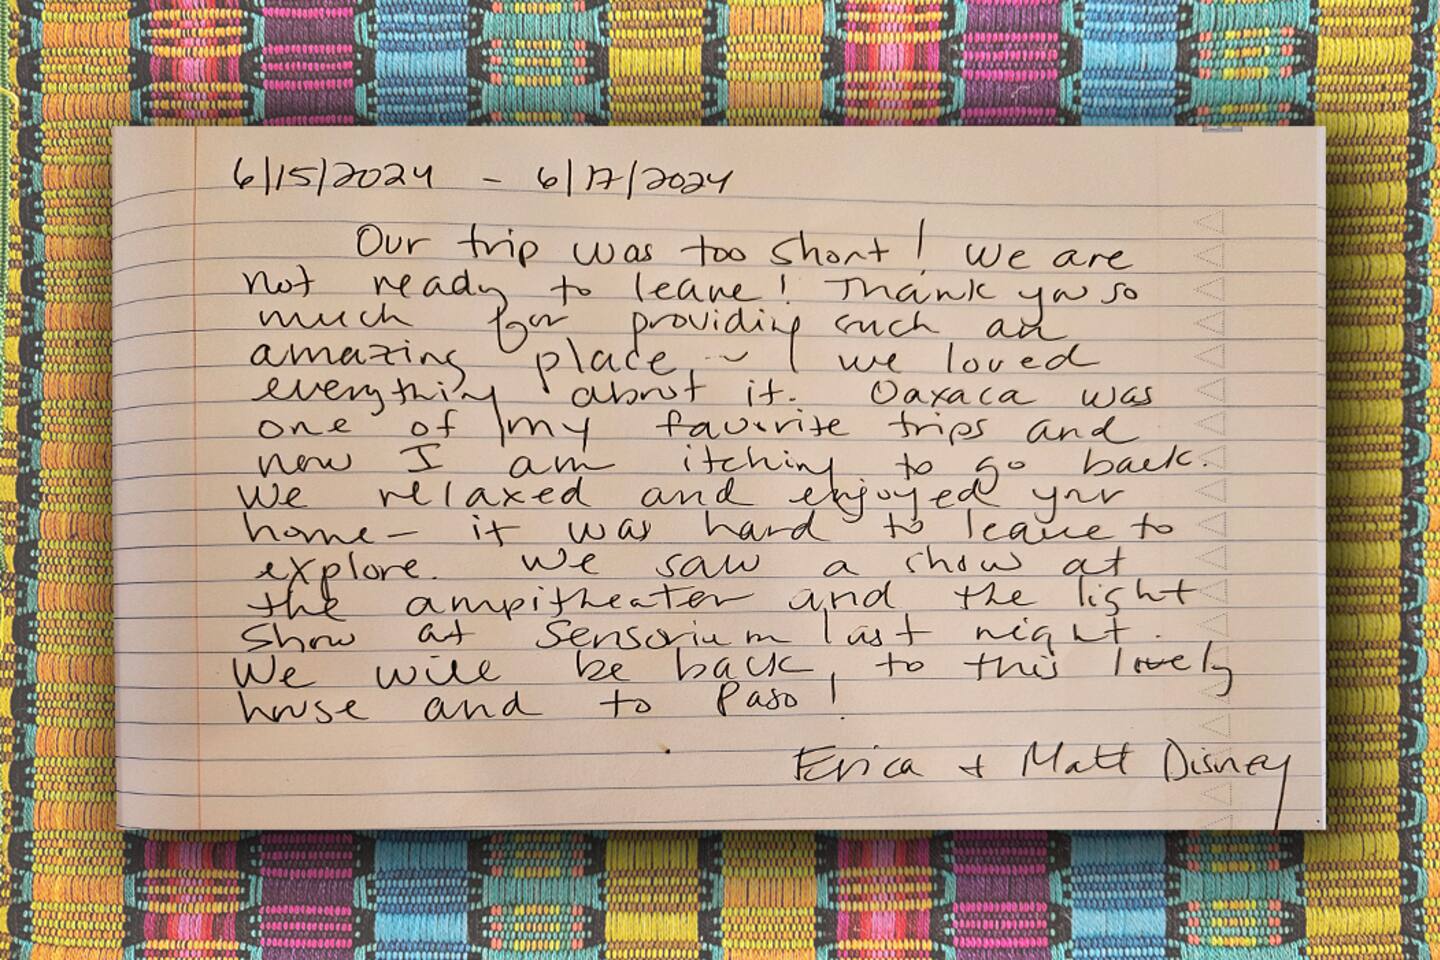 6/15/2024 - 6/17/2024
Our trip was too short! We are
not ready to leave! Thank you so
much for providing such an
amazing place ~ we loved
everything about it. Oaxaca was
one of my favorite trips and
now I am itching to go back.
We relaxed and enjoyed your
home - it was hard to leave to
explore. We saw a show at
the ampitheater and the light
show at Sensorium last night.
We will be back, to this lovely
house and to Paso!
Erica + Matt Disney